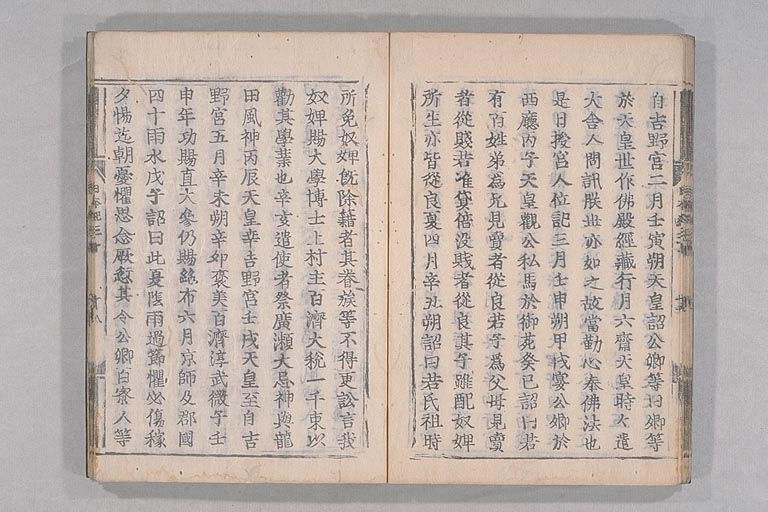 自吉野宮二月壬寅朔天皇詔公卿等曰卿等
於天皇世作佛殿經藏行月六齋天皇時々遣
大舍人問訊朕世亦如之故當勤心奉佛法也
是日授宮人位記三月壬申朔甲戌宴公卿於
西廳丙子天皇觀公私馬於御苑癸巳詔曰若
有百姓弟為兄見賣者從良若子為父母見賣
者從賤若准貸倍没賤者從良其子雖配奴婢
所生亦皆從良夏四月辛丑朔詔曰若氏祖時
所免奴婢既除籍者其眷族等不得更訟言我
奴婢賜大學博士上村主百濟大税一千束以
勸其學業也辛亥遣使者祭廣瀬大忌神與龍
田風神丙辰天皇幸吉野宮壬戌天皇至自吉
野宮五月辛未朔辛卯褒美百濟淳武微子壬
申年功賜直大參仍賜絁布六月京師及郡國
四十雨水戊子詔曰此夏陰雨過節懼必傷稼
夕惕迄朝憂懼思念厥愆其令公卿百寮人等